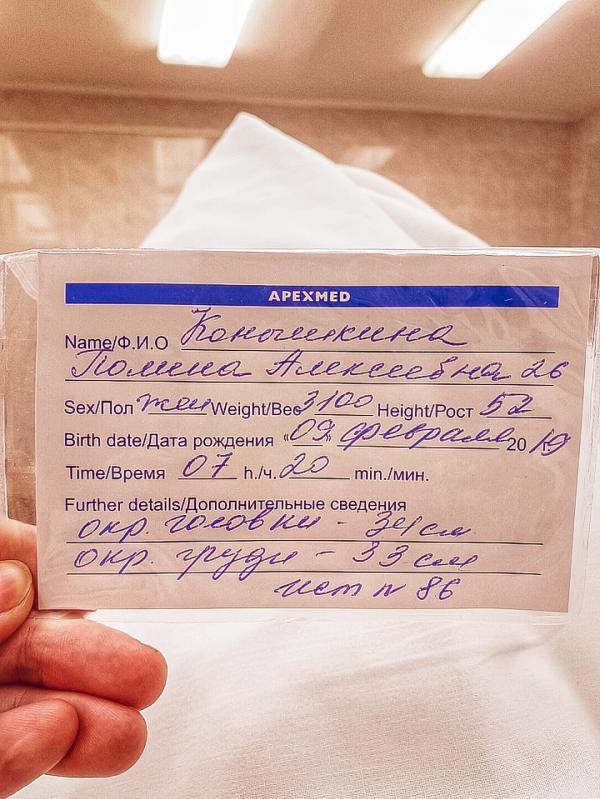 APEXMED
Name/Ф.И.О Конышкина
Полина Алексеевна 26
Sex/Пол жен Weight/Вес 3100 Height/Рост 52
Birth date/Дата рождения «09» февраля 20 19
Time/Время 07 h./ч. 20 min./мин.
Further details/Дополнительные сведения
окр. головки - 34 см
окр. груди - 33 см
ист N 86